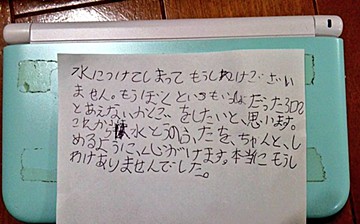 水につけてしまってもうしわけござい
ません。もうぼくといっしょだった3DS
とあえないかくごをしたいと、思います。
これから水とうのふたを、ちゃんと、し
めるように、心がけます。本当にもうし
わけありませんでした。